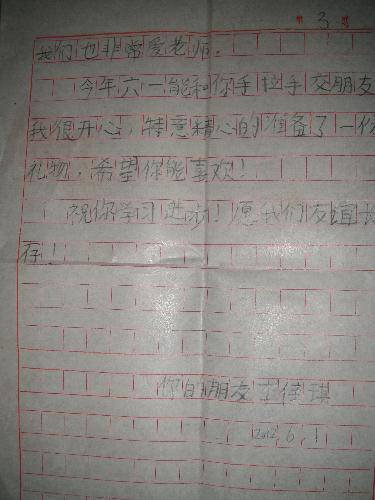 3
我们也非常爱老师。
今年六一能和你手拉手交朋友
我很开心，特意精心的准备了一份
礼物，希望你能喜欢！
祝你学习进步！愿我们友谊长
存！
你的朋友 佳琪
2012.6.1